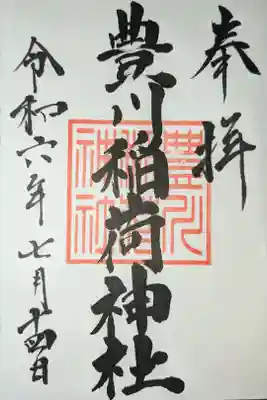 奉拝
豊川稲荷神社
令和六年七月十四日